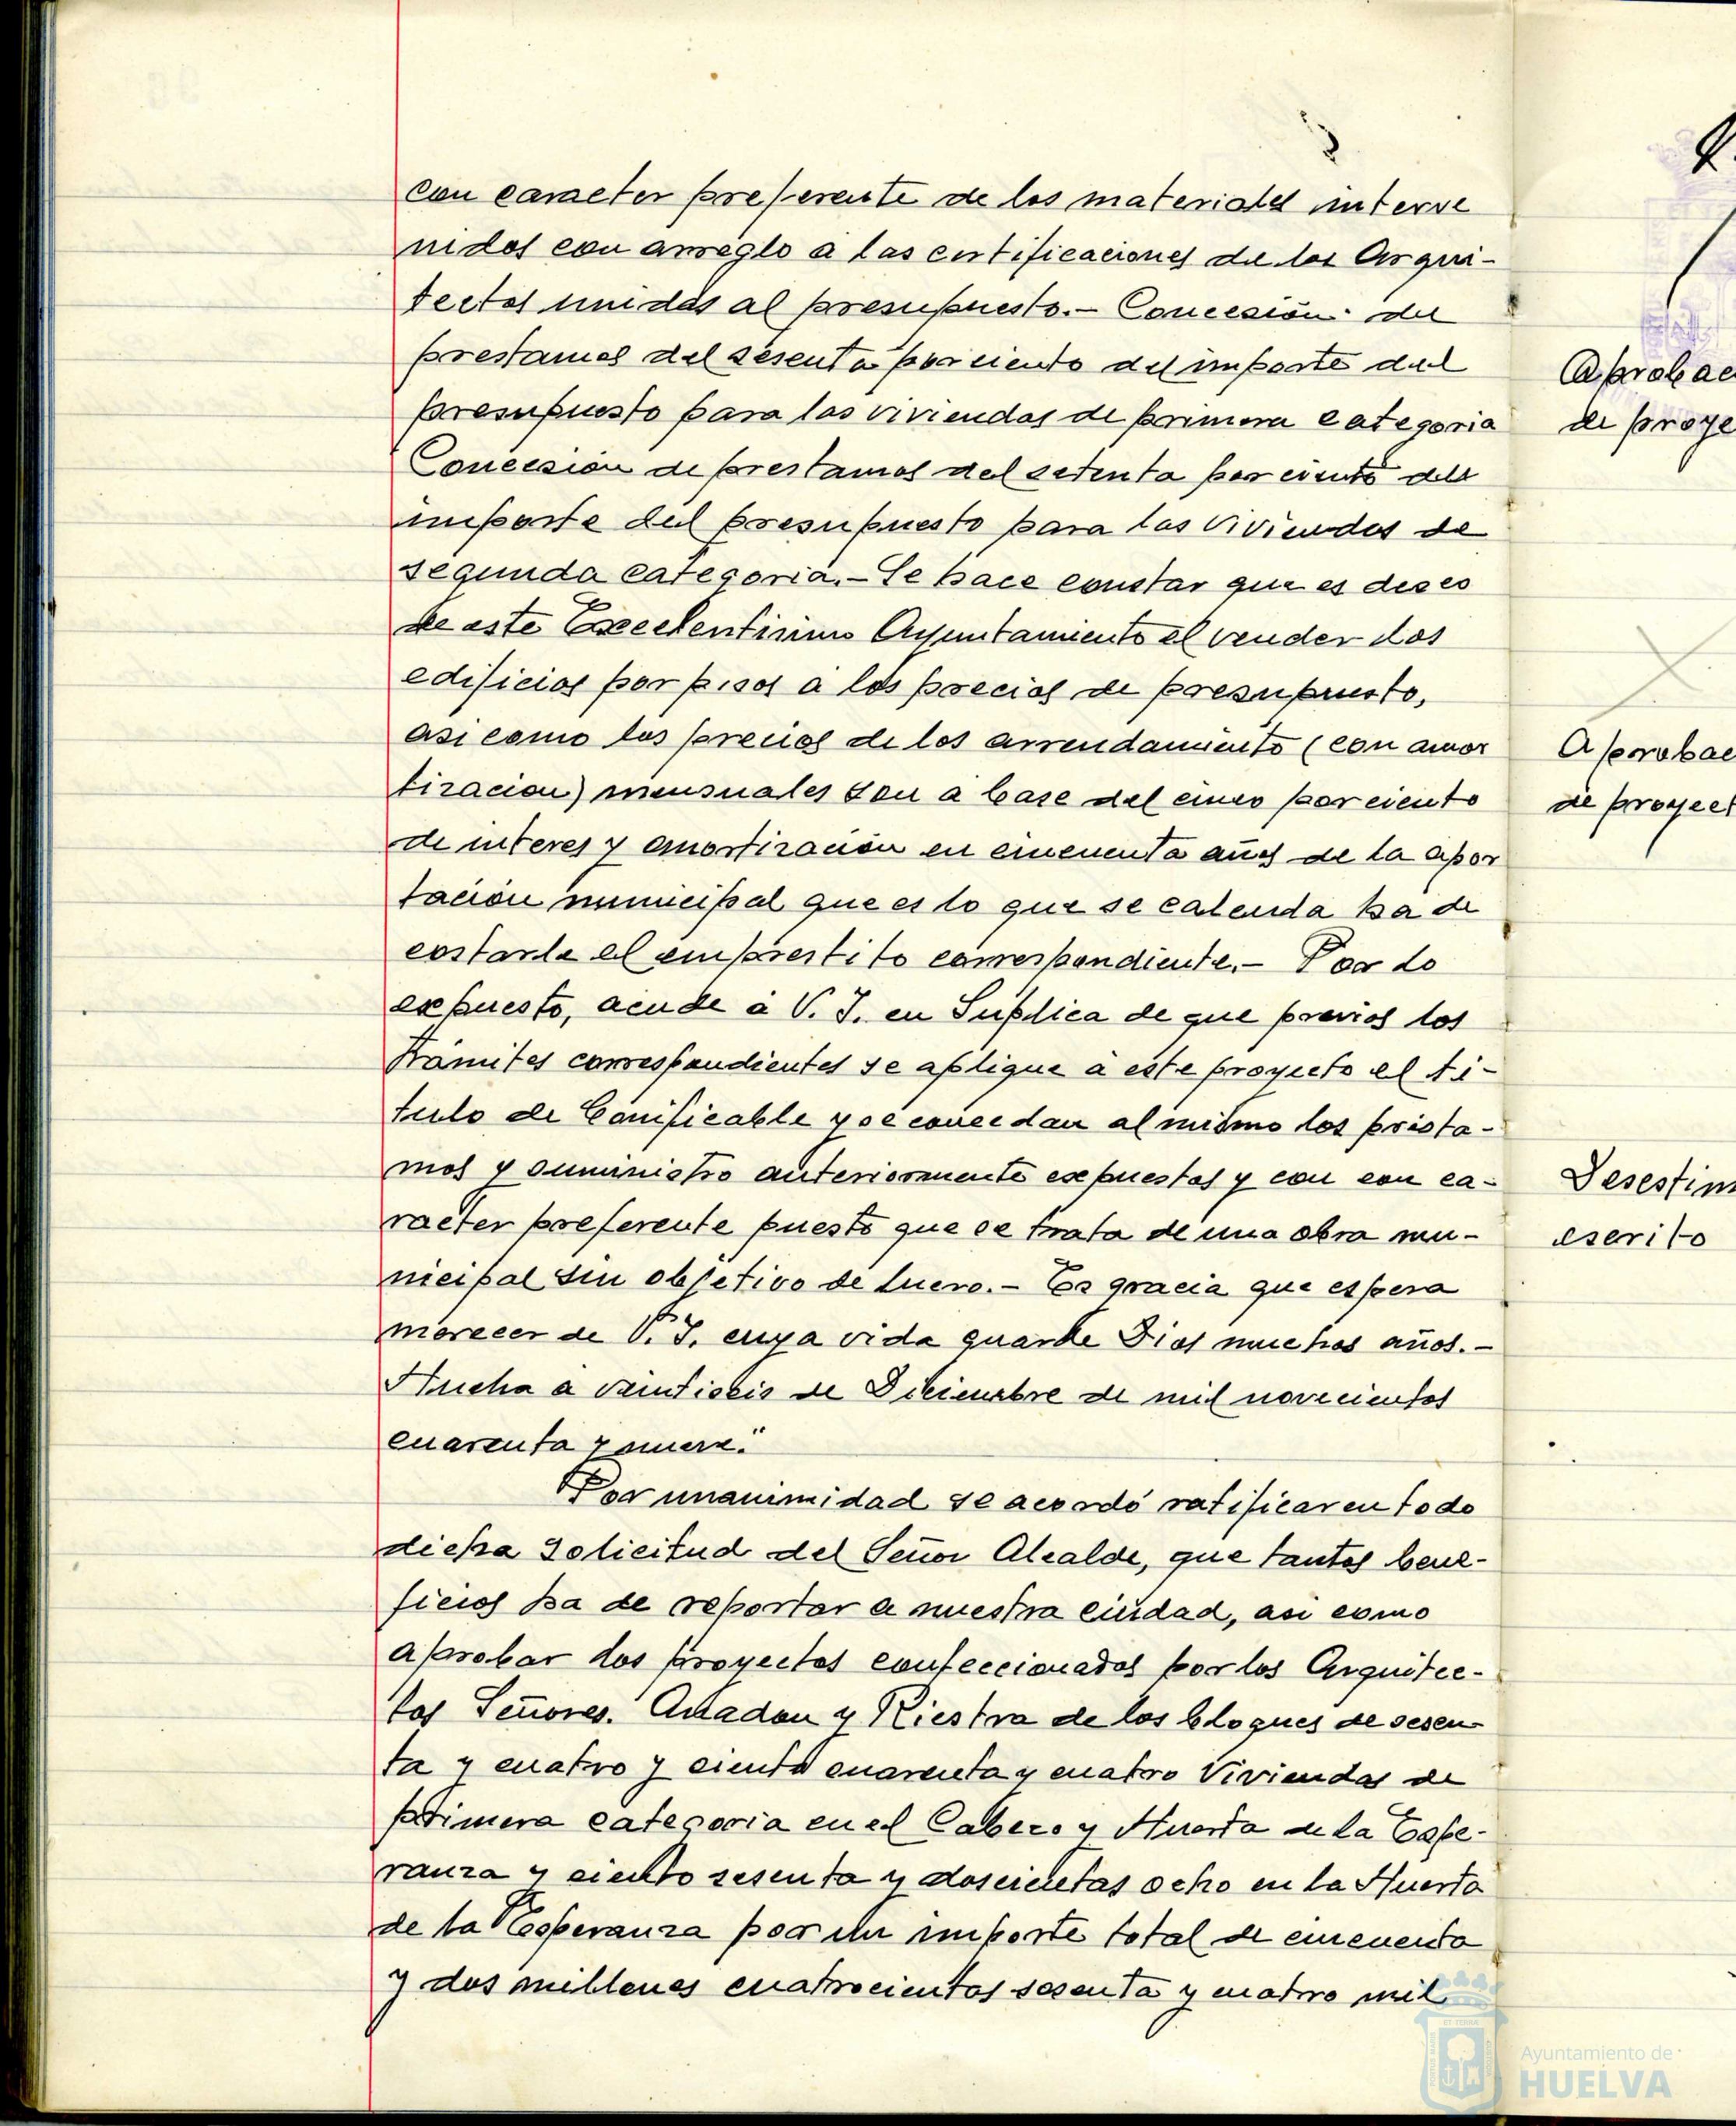 con caracter preferente de los materiales interve
nidos con arreglo a las certificaciones de los Arqui-
tectos unidas al presupuesto.- Concesión de
prestamos del sesenta por ciento del importe del
presupuesto para las viviendas de primera categoria
Concesion de prestamos del setenta por ciento del
importe del presupuesto para las viviendas de
segunda categoria.- Se hace constar que es deseo
de este Excelentisimo Ayuntamiento el vender los
edificios por pisos a los precios de presupuesto,
asi como los precios de los arrendamiento (con amor
tizacion) mensuales son a base del cinco por ciento
de interes y amortización en cincuenta años de la apor
tación municipal que es lo que se calcula ha de
costarle el emprestito correspondiente.- Por lo
expuesto, acude a V. I. en Suplica de que previos los
trámites correspondientes se aplique a este proyecto el ti-
tulo de bonificable y se concedan al mismo los presta-
mos y suministro anteriormente expuestos y con con ca-
racter preferente puesto que se trata de una obra mu-
nicipal sin objetivo de lucro.- Es gracia que espera
merecer de V. I. cuya vida guarde Dios muchos años.-
Huelva a veintiseis de Diciembre de mil novecientos
cuarenta y nueve."
Por unanimidad se acordó ratificar en todo
dicha solicitud del Señor Alcalde, que tantos bene-
ficios ha de reportar a nuestra ciudad, asi como
aprobar los proyectos confeccionados por los Arquitec-
tos Señores. Anadon y Riestra de los bloques de sesen
ta y cuatro y ciento cuarenta y cuatro viviendas de
primera categoria en el Cabezo y Huerta de la Espe-
ranza y ciento sesenta y doscientas ocho en la Huerta
de la Esperanza por un importe total de cincuenta
y dos millones cuatrocientos sesenta y cuatro mil
Aprobac
de proye
Aprobac
de proyect
Desestim
escrito
Ayuntamiento de
HUELVA